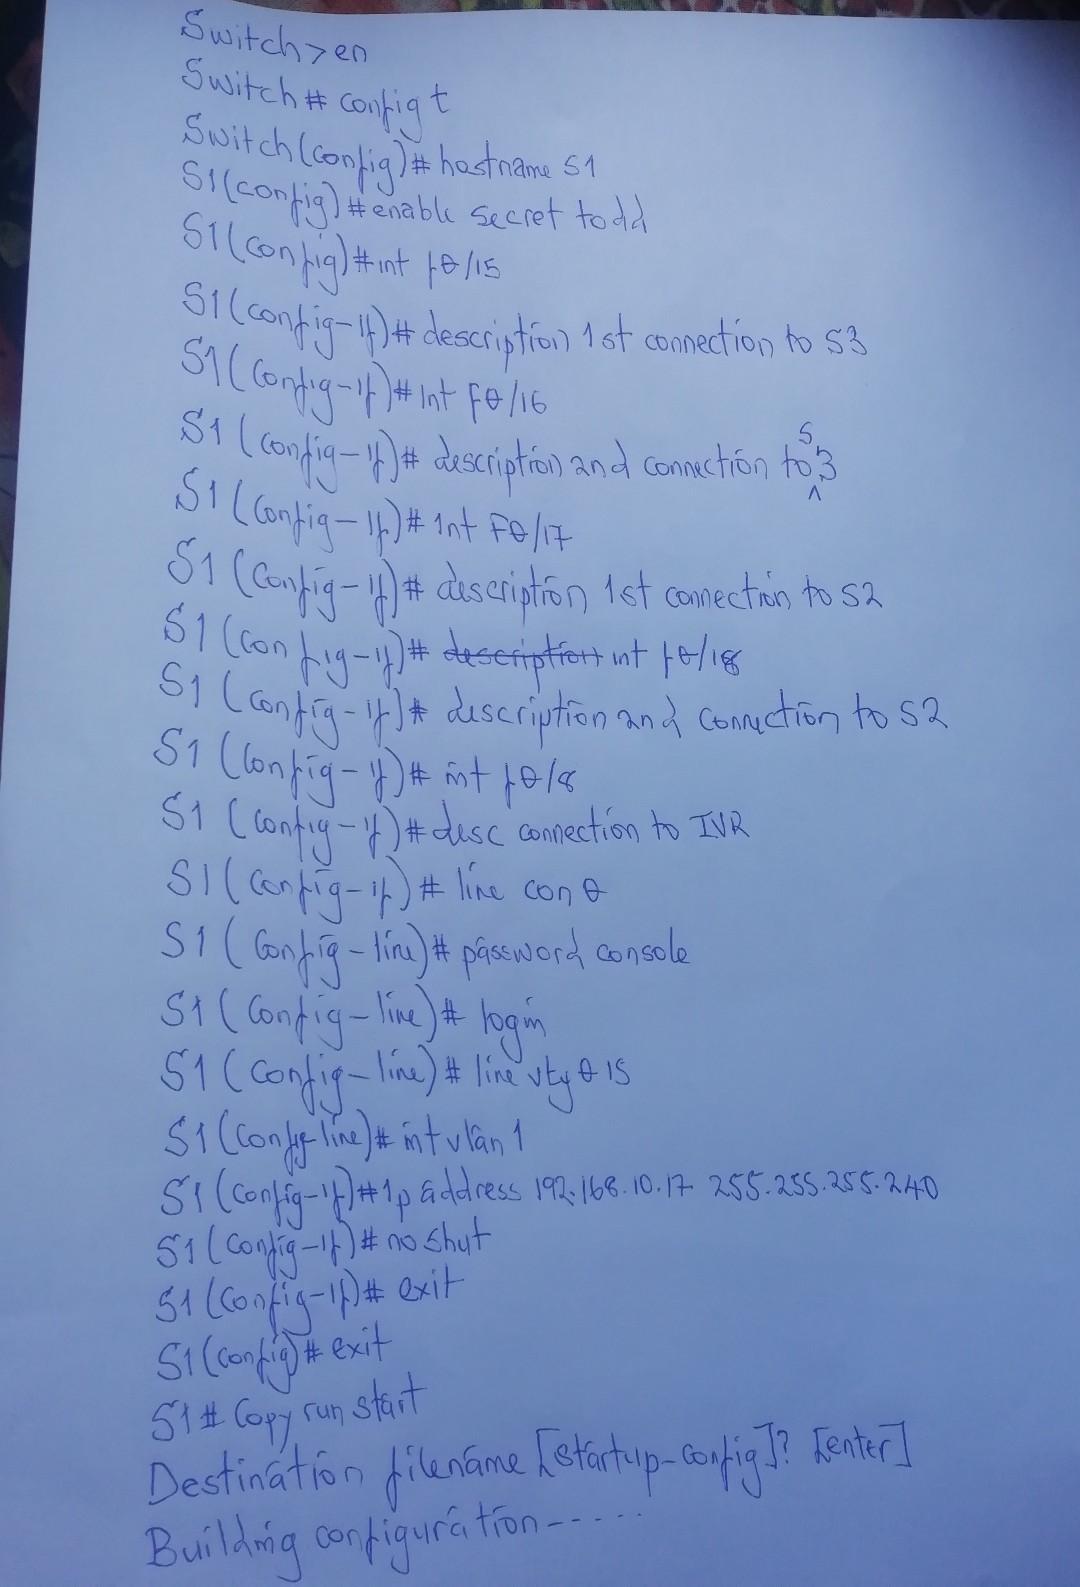 Switch>en
Switch# config t
Switch(config)# hostname S1
S1(config)#enable secret todd
S1(config)#int f0/15
S1(config-if)# description 1st connection to S3
S1(config-if)#int f0/16
S1(config-if)# description and connection to S3
S1(config-if)# int F0/17
S1(config-if)# description 1st connection to S2
S1(config-if)# description int f0/18
S1(config-if)# description and connection to S2
S1(config-if)# int f0/8
S1(config-if)#desc connection to IVR
S1(config-if)# line con 0
S1(config-line)# password console
S1(config-line)# login
S1(config-line)# line vty 0 15
S1(config-line)# int vlan 1
S1(config-if)#ip address 192.168.10.17 255.255.255.240
S1(config-if)# no shut
S1(config-if)# exit
S1(config)# exit
S1# Copy run start
Destination filename [startup-config]? [enter]
Building configuration-----